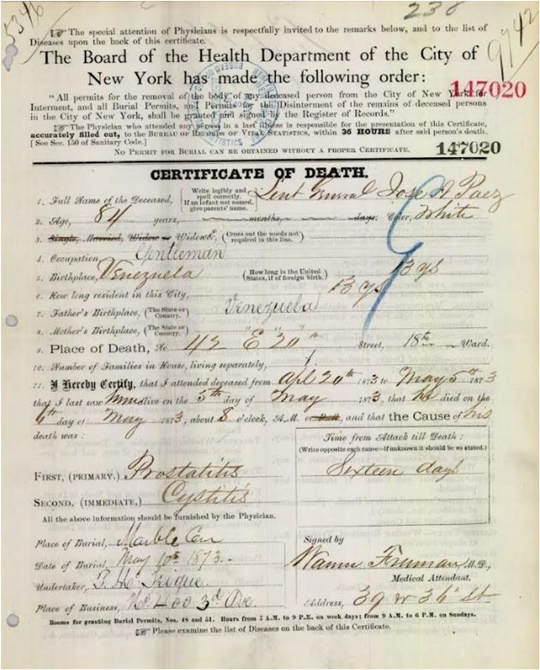 5346
238
9742
☞ The special attention of Physicians is respectfully invited to the remarks below, and to the list of
Diseases upon the back of this certificate.
The Board of the Health Department of the City of
New York has made the following order:
147020
"All permits for the removal of the body of any deceased person from the City of New York for
Interment, and all Burial Permits, and Permits for the Disinterment of the remains of deceased persons
in the City of New York, shall be granted and signed by the Register of Records."
☞ The Physician who attended any person in a last illness is responsible for the presentation of this Certificate,
accurately filled out, to the BUREAU OF RECORDS OF VITAL STATISTICS, within 36 HOURS after said person's death.
[See Sec. 150 of Sanitary Code.]
NO PERMIT FOR BURIAL CAN BE OBTAINED WITHOUT A PROPER CERTIFICATE.
147020
CERTIFICATE OF DEATH.
1. Full Name of the Deceased, {Write legibly and spell correctly. If an infant not named, give parents' name.} Lieut General Jose A Paez
2. Age, 84 years, months, days. Color, White
3. Single, Married, Widow or Widower, {Cross out the words not required in this line.}
4. Occupation, Gentleman
5. Birthplace, Venezuela {How long in the United States, if of foreign birth.} 13 ys
6. How long resident in this City, 13 ys
7. Father's Birthplace, {The State or Country.} Venezuela
8. Mother's Birthplace, {The State or Country.} "
9. Place of Death, No. 42 "E" 20th Street, 18th Ward.
10. Number of Families in House, living separately, 1
11. I Hereby Certify, that I attended deceased from Apl 20th 1873 to May 5th 1873
that I last saw him alive on the 5th day of May 1873, that he died on the
6th day of May 1873, about 8 o'clock, A.M. or P.M., and that the Cause of his
death was:
Time from Attack till Death:
(Write opposite each cause.—If unknown it should be so stated.)
FIRST, (PRIMARY,) Prostatitis
Sixteen days
SECOND, (IMMEDIATE,) Cystitis
All the above information should be furnished by the Physician.
Place of Burial, Marble Cem
Date of Burial, May 10th 1873.
Undertaker,
Place of Business, No 400 3d Ave.
Signed by
Freeman M.D.,
Medical Attendant.
Address, 39 W 36 St
Rooms for granting Burial Permits, Nos. 48 and 51. Hours from 7 A.M. to 9 P.M. on week days; from 9 A.M. to 6 P.M. on Sundays.
☞ Please examine the list of Diseases on the back of this Certificate.